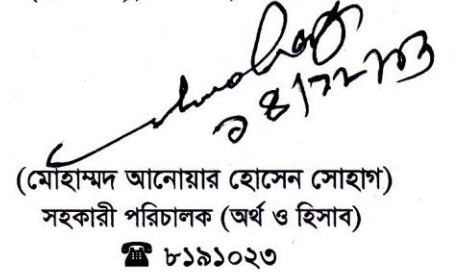 (মোহাম্মদ আনোয়ার হোসেন সোহাগ)
সহকারী পরিচালক (অর্থ ও হিসাব)
☎ ৮১৯১০২৩